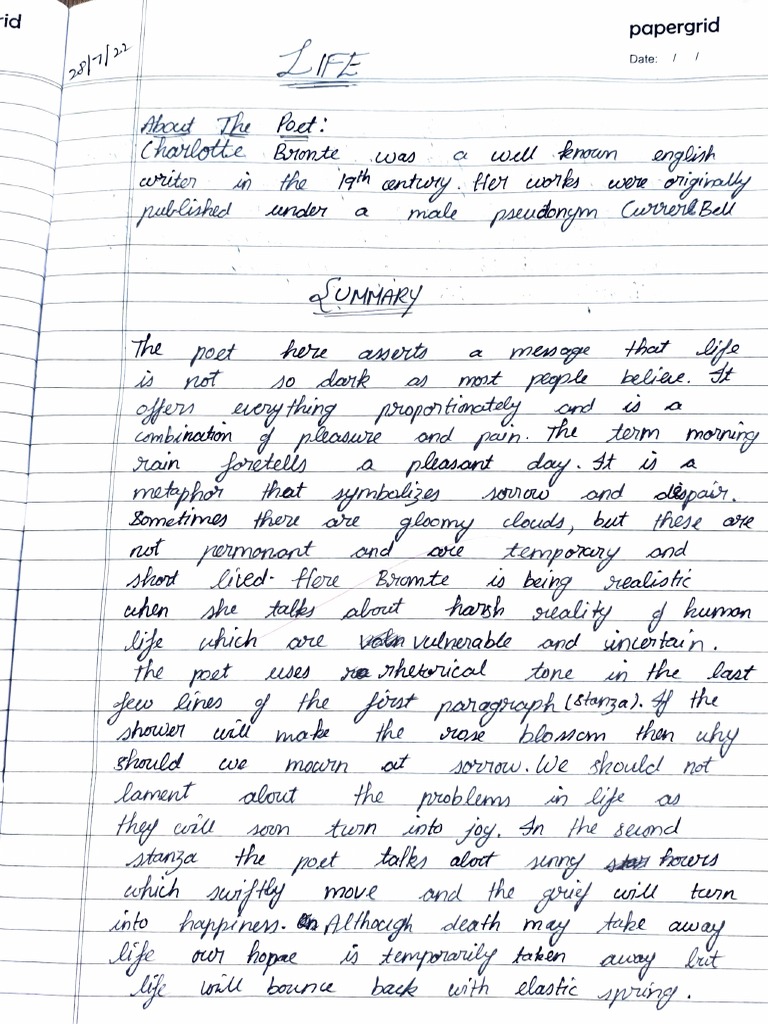 rid
papergrid
Date: / /
28/7/22
LIFE
About The Poet:
Charlotte Bronte was a well known english
writer in the 19th century. Her works were originally
published under a male pseudonym Currer Bell
SUMMARY
The poet here asserts a message that life
is not so dark as most people believe. It
offers everything proportionately and is a
combination of pleasure and pain. The term morning
rain foretells a pleasant day. It is a
metaphor that symbolizes sorrow and despair.
Sometimes there are gloomy clouds, but these are
not permonant and are temporary and
short lived. Here Bromte is being realistic
when she talks about harsh reality of human
life which are vulnerable and uncertain.
the poet uses rhetorical tone in the last
few lines of the first paragraph (stanza). If the
shower will make the rose blossom then why
should we mourn at sorrow. We should not
lament about the problems in life as
they will soon turn into joy. In the second
stanza the poet talks about sunny hours
which swiftly move and the grief will turn
into happiness. Although death may take away
life our hopae is temporarily taken away but
life will bounce back with elastic spring.